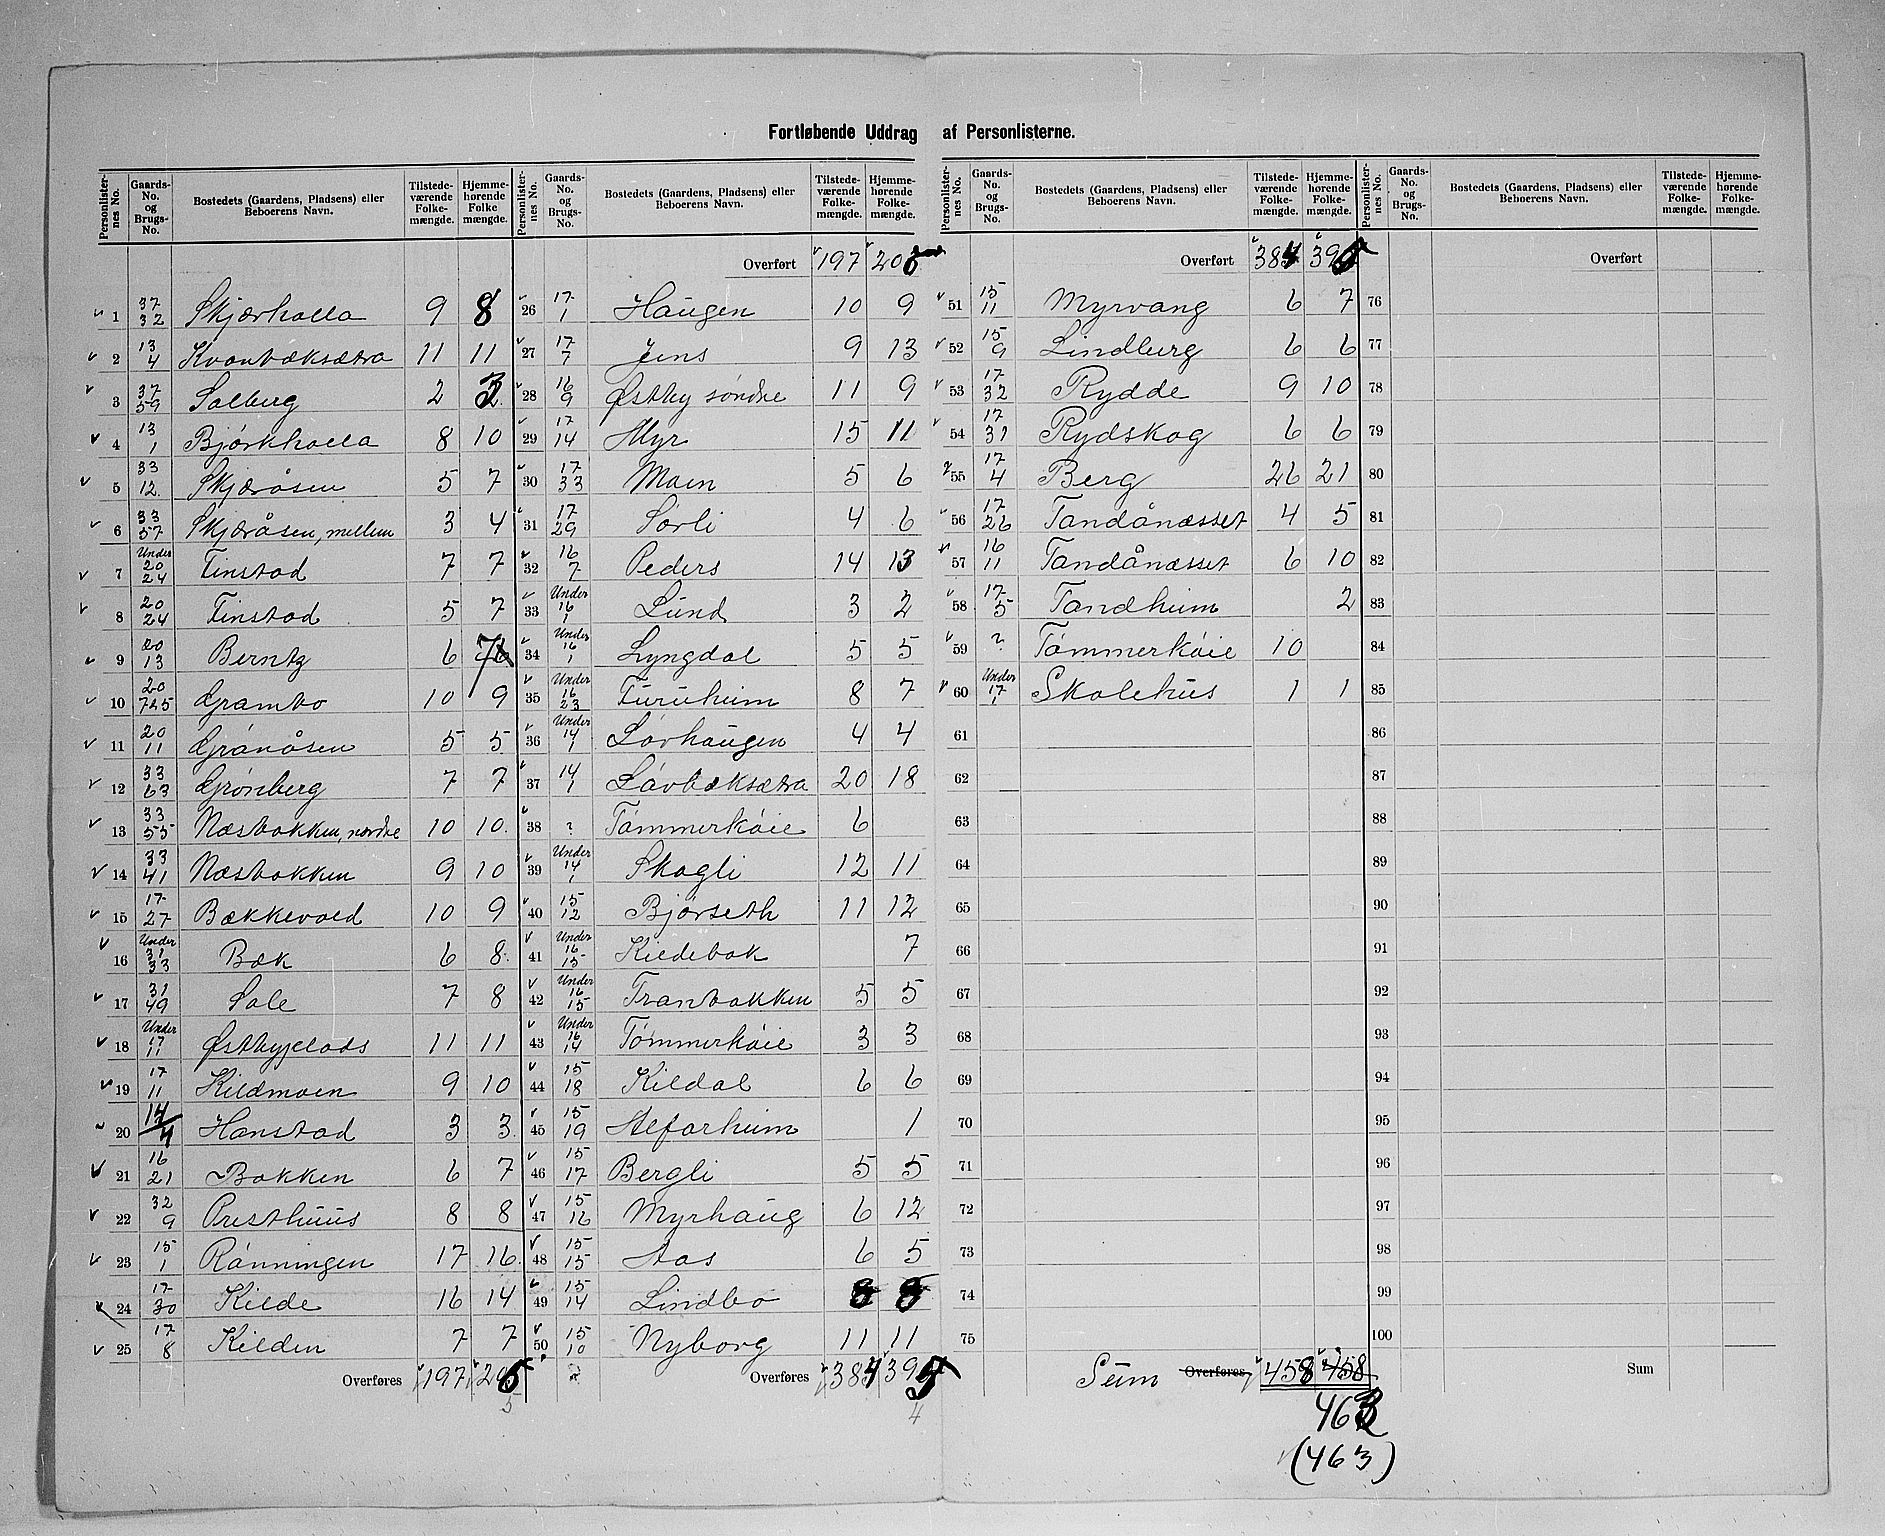 Fortløbende Uddrag af Personlisterne.
Personlister-nes No. | Gaards-No. og Brugs-No. | Bostedets (Gaardens, Pladsens) eller Beboerens Navn. | Tilstede-værende Folke-mængde. | Hjemme-hørende Folke mængde.
1 37/32 Skjærholla 9 8
2 13/4 Kvanbæksætra 11 11
3 37/59 Solberg 2 3
4 13/1 Bjørkholla 8 10
5 33/12 Skjæråsen 5 7
6 33/57 Skjæråsen, mellem 3 4
7 Under 20/24 Finstad 7 7
8 20/24 Finstad 5 7
9 20/13 Berntz 6
10 20/725 Grambo 10 9
11 20/11 Grånåsen 5 5
12 33/63 Grønberg 7 7
13 33/55 Næsbakken, nordre 10 10
14 33/41 Næsbakken 9 10
15 17/27 Bækkevold 10 9
16 Under 31/33 Bæk 6 8
17 31/49 Sole 7 8
18 Under 17/11 Østbyjelads 11 11
19 17/11 Kildmoen 9 10
20 14/4 Hanstad 3 3
21 16/21 Bakken 6 7
22 32/9 Presthuus 8 8
23 15/1 Rønningen 17 16
24 17/30 Kilde 16 14
25 17/8 Kilden 7 7
Overføres 197 205
5
Personlister-nes No. | Gaards-No. og Brugs-No. | Bostedets (Gaardens, Pladsens) eller Beboerens Navn. | Tilstede-værende Folke-mængde. | Hjemme-hørende Folke-mængde.
Overført 197 205
26 17/1 Haugen 10 9
27 17/7 Jens 9 13
28 16/9 Østby søndre 11 9
29 17/14 Myr 15 11
30 17/33 Moen 5 6
31 17/29 Sørli 4 6
32 16/7 Peders 14 13
33 Under 16/1 Lund 3 2
34 Under 16/1 Lyngdal 5 5
35 Under 16/23 Furuheim 8 7
36 Under 14/1 Løvhaugen 4 4
37 14/1 Løvbæksætra 20 18
38 ? Tømmerkøie 6
39 Under 14/1 Skogli 12 11
40 15/12 Bjørseth 11 12
41 Under 16/15 Kildebak 7
42 Under 16/15 Tranbakken 5 5
43 Under 16/14 Tømmerkøie 3 3
44 15/18 Kildal 6 6
45 15/19 Alfarheim 1
46 15/17 Bergli 5 5
47 15/16 Myrhaug 6 12
48 15/15 Aas 6 5
49 15/14 Lindbo 8 8
50 15/10 Nyborg 11 11
Overføres 384 395
4
Personlister-nes No. | Gaards-No. og Brugs-No. | Bostedets (Gaardens, Pladsens) eller Beboerens Navn. | Tilstede-værende Folke-mængde. | Hjemme-hørende Folke-mængde.
Overført 384 395
51 15/11 Myrvang 6 7
52 15/9 Lindberg 6 6
53 17/32 Rydde 9 10
54 17/31 Rydskog 6 6
55 17/4 Berg 26 21
56 17/26 Tandånæsset 4 5
57 16/11 Tandånæsset 6 10
58 17/5 Tandheim 2
59 ? Tømmerkøie 10
60 Under 17/1 Skolehus 1 1
61
62
63
64
65
66
67
68
69
70
71
72
73
74
75
Sum Overføres 458 458
463
(463)
Personlister-nes No. | Gaards-No. og Brugs-No. | Bostedets (Gaardens, Pladsens) eller Beboerens Navn. | Tilstede-værende Folke-mængde. | Hjemme-hørende Folke-mængde.
Overført
76
77
78
79
80
81
82
83
84
85
86
87
88
89
90
91
92
93
94
95
96
97
98
99
100
Sum